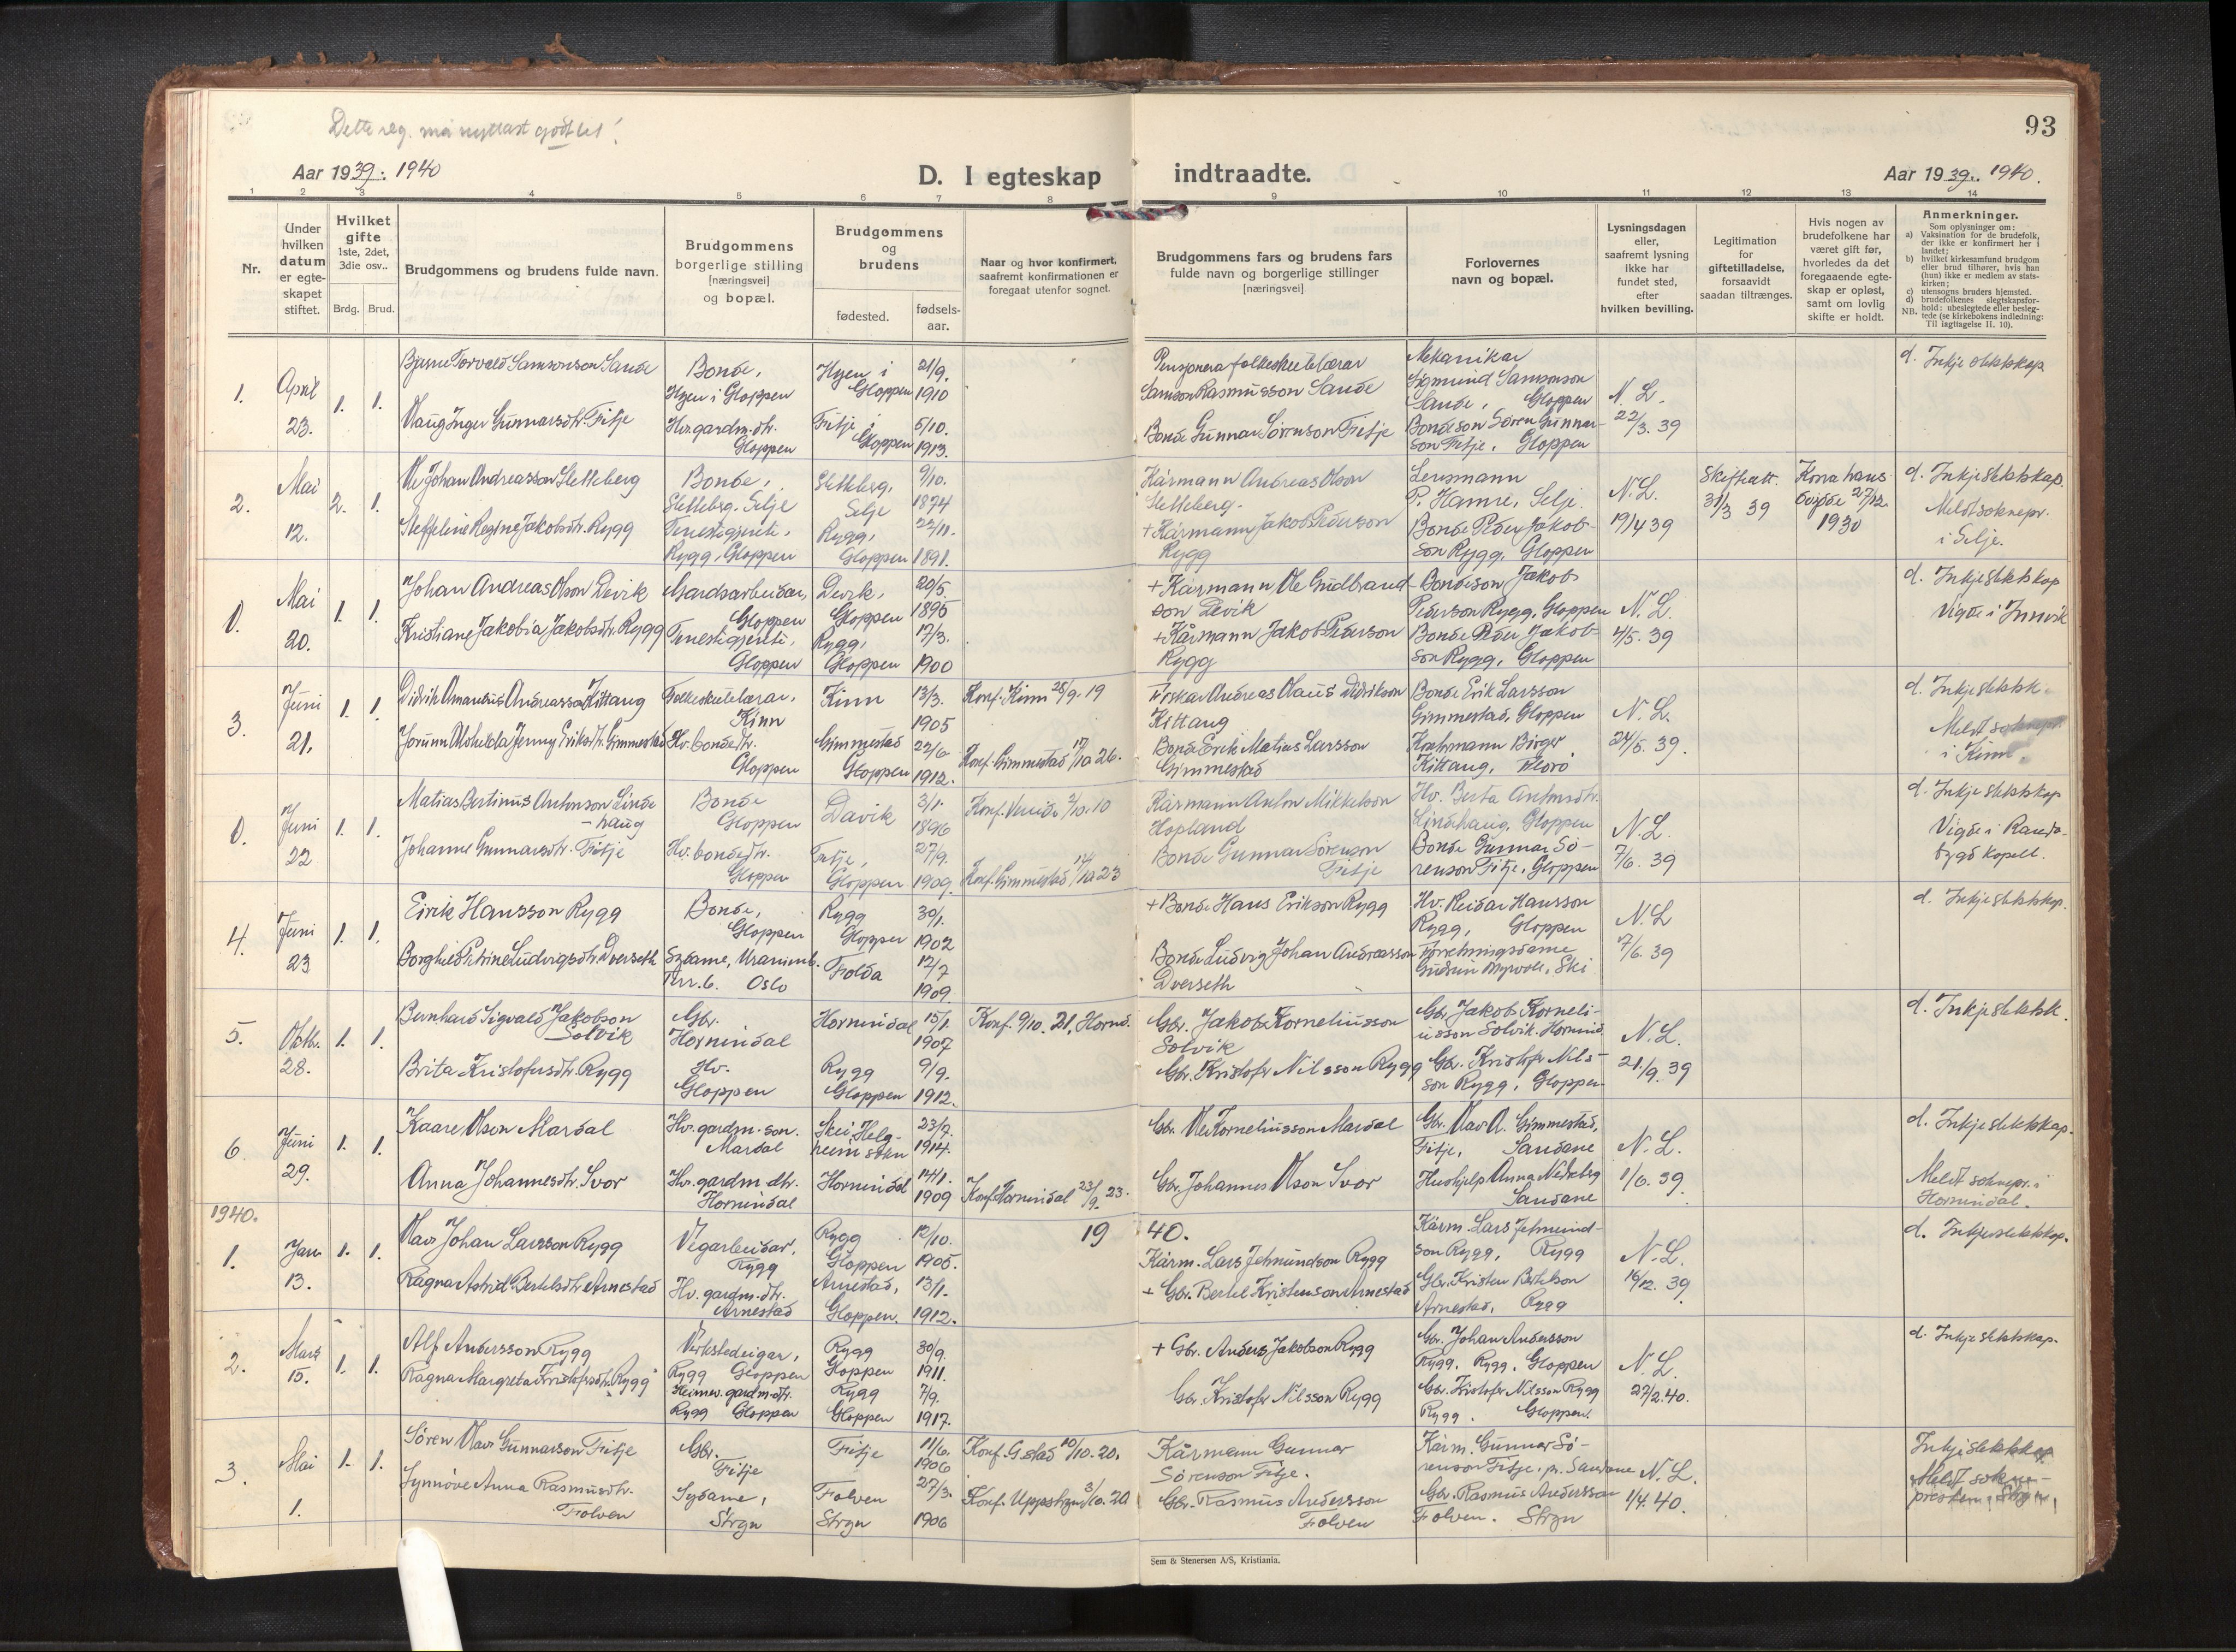 Dette reg. må nyttast godt ut!
93
Aar 1939. 1940
D. I egteskap indtraadte.
Aar 1939. 1940.
1 2 3 4 5 6 7 8 9 10 11 12 13 14
Nr.
Under hvilken datum er egteskapet stiftet.
Hvilket gifte 1ste, 2det, 3die osv..
Brdg. Brud.
Brudgommens og brudens fulde navn.
Brudgommens borgerlige stilling [næringsvei] og bopæl.
Brudgommens og brudens
fødested.
fødsels-aar.
Naar og hvor konfirmert, saafremt konfirmationen er foregaat utenfor sognet.
Brudgommens fars og brudens fars fulde navn og borgerlige stillinger [næringsvei]
Forlovernes navn og bopæl.
Lysningsdagen eller, saafremt lysning ikke har fundet sted, efter hvilken bevilling.
Legitimation for giftetilladelse, forsaavidt saadan tiltrænges.
Hvis nogen av brudefolkene har været gift før, hvorledes da det foregaaende egteskap er opløst, samt om lovlig skifte er holdt.
Anmerkninger.
Som oplysning om:
a) Vaksination for de brudefolk, der ikke er konfirmert her i landet;
b) hvilket kirkesamfund brudgom eller brud tilhører, hvis han (hun) ikke er medlem av statskirken;
c) utensogns bruders hjemsted.
d) brudefolkenes slegtskapsforhold: ubeslegtede eller beslegtede (se kirkebokens indledning: Til Iagttagelse II. 10).
NB.
1. April 23. 1. 1.
Bjarne Torvald Samsonson Sande
Bonde, Hyen i Gloppen
Hyen i Gloppen 21/9. 1910
Pensjonera folkeskulelærar Samson Rasmusson Sande
Mekanikar Sigmund Samsonson Sande, Gloppen
N. L. 22/3. 39
d. Inkje slektskap
Inger Gunnarsdtr. Fitje
Hv. gardm. dtr. Gloppen
Fitje i Gloppen 5/10. 1913.
Bonde Gunnar Sørenson Fitje
Bondeson Søren Gunnarson Fitje, Gloppen
2. Mai 12. 2. 1.
Ole Johan Andreasson Sletteberg
Bonde, Sletteberg, Selje
Sletteberg, Selje 9/10. 1874
Kårmann Andreas Olson Sletteberg.
Lensmann P. Hamre, Selje.
N. L. 19/4 39
Skifteatt. 31/3 39
Kona hans døyde 27/12 1930
d. Inkje slektskap.
Meldt soknepr. i Selje.
Steffeline Regine Jakobsdtr. Rygg
Tenestgjente, Rygg, Gloppen
Rygg, Gloppen 22/11. 1891.
+ Kårmann Jakob Pederson Rygg
Bonde Peder Jakobson Rygg, Gloppen
0. Mai 20. 1. 1.
Johan Andreas Olson Devik
Gardsarbeidar, Gloppen
Devik, Gloppen 20/5. 1895
+ Kårmann Ole Gudbrandson Devik
Bondeson Jakob Pederson Rygg, Gloppen
N. L. 4/5. 39
d. Inkje slektskap
Vigde i Innvik
Kristiane Jakobia Jakobsdtr. Rygg
Tenestgjente, Gloppen
Rygg, Gloppen 17/3. 1900
+ Kårmann Jakob Pederson Rygg
Bonde Peder Jakobson Rygg, Gloppen
3. Juni 21. 1. 1.
Didrik Amandus Andreasson Kittang
Folkeskulelærar, Kinn
Kinn 13/3. 1905
Konf. Kinn 28/9. 19
Fiskar Andreas Olaus Didrikson Kittang
Bonde Erik Larsson Gimmestad, Gloppen
N. L. 24/5. 39.
d. Inkje slektsk.
Meldt soknepr. i Kinn.
Jorunn Alvhelda Jenny Eriksdtr. Gimmestad
Hv. bondedtr. Gloppen
Gimmestad Gloppen 22/6 1912.
Konf. Gimmestad 17/10 26.
Bonde Erik Matias Larsson Gimmestad
Birger Kittang, Florø
0. Juni 22 1. 1.
Matias Bertinus Antonson Lindehaug
Bonde Gloppen
Davik 3/1. 1896
Konf. 2/10. 10
Kårmann Anton Mikkelson Hopland
Hv. Berta Antonsdtr. Lindhaug, Gloppen
N. L. 7/6. 39
d. Inkje slektskap
Vigde i Randabygd kapell.
Johanne Gunnarsdtr. Fitje
Hv. bondedtr. Gloppen
Fitje, Gloppen 27/9. 1909.
Konf. Gimmestad 14/10 23
Bonde Gunnar Sørenson Fitje
Bonde Gunnar Sørenson Fitje, Gloppen
4. Juni 23 1. 1.
Eirik Hansson Rygg
Bonde, Gloppen
Rygg Gloppen 30/1. 1902
+ Bonde Hans Erikson Rygg
Hv. Reidar Hansson Rygg, Gloppen
N. L 7/6. 39
d. Inkje slektskap.
Borghild Petrine Ludvigsdtr. Dverseth
Sydame, Uranienb. Terr. 6. Oslo
Folda 12/7 1909.
Bonde Ludvig Johan Andreasson Dverseth
Forretningsdame Gudrun Myrvold, Ski
5. Oktbr. 28. 1. 1.
Bernhard Sigvald Jakobson Solvik
Gbr. Hornindal
Hornindal 15/1. 1907
Konf. 9/10. 21, Hornd.
Gbr. Jakob Korneliusson Solvik
Gbr. Jakob Korneliusson Solvik. Hornind.
N. L. 21/9. 39
d. Inkje slektsk.
Brita Kristofersdtr. Rygg
Hv. Gloppen
Rygg Gloppen 9/9. 1912.
Gbr. Kristofer Nilsson Rygg
Gbr. Kristofer Nilsson Rygg, Gloppen
6. Juni 29. 1. 1.
Kaare Olson Mardal
Hv. gardm. son. Mardal
Skei, Helgheim sokn 23/7. 1914.
Gbr. Ole Korneliusson Mardal
Gbr. Olav A. Gimmestad, Fitje, Sandane
N. L. 1/6. 39
d. Inkje slektskap.
Meldt soknepr. i Hornindal.
Anna Johannesdtr. Svor
Hv. gardm dtr. Hornindal
Hornindal 14/1. 1909
Konf. Hornindal 23/9. 23.
Gbr. Johannes Olson Svor
Hushjelp Anna Nedreberg Sandane
1940. 19 40.
1. Jan 13. 1. 1.
Olav Johan Larsson Rygg
Vegarbeidar, Rygg
Rygg Gloppen 12/10. 1905.
Kårm. Lars Jehmundson Rygg
Kårm. Lars Jehmundson Rygg, Rygg
N. L. 16/12. 39
d. Inkje slektskap.
Ragna Astrid Bertelsdtr. Arnestad
Hv. gardm. dtr. Arnestad
Arnestad, Gloppen. 13/1. 1912.
+ Gbr. Bertel Kristenson Arnestad
Gbr. Kristen Bertelson Arnestad, Rygg
2. Mars 15. 1. 1.
Alf Andersson Rygg
Verkstedeigar, Rygg Gloppen
Rygg Gloppen 30/9. 1911.
+ Gbr. Anders Jakobson Rygg
Gbr. Johan Andersson Rygg, Rygg, Gloppen
N. L. 27/2. 40.
d. Inkje slektskap.
Ragna Margreta Kristofersdtr. Rygg
Heimev. gardm. dtr. Rygg Gloppen
Rygg Gloppen 7/9. 1917.
Gbr. Kristofer Nilsson Rygg
Gbr. Kristofer Nilsson Rygg Rygg. Gloppen.
3. Mai 1. 1. 1.
Søren Olav Gunnarson Fitje
Gbr. Fitje
Fitje 11/6. 1906
Konf. G.stad 10/10. 20.
Kårmann Gunnar Sørenson Fitje.
Kårm. Gunnar Sørenson Fitje, p. Sandane
N. L. 1/4. 40.
Inkje slektskap
Meldt soknepresten i Stryn.
Synnøve Anna Rasmusdtr. Folven
Sydame, Stryn
Folven Stryn 27/3. 1906
Konf. Uppstryn 3/10. 20
Gbr. Rasmus Andersson Folven
Gbr. Rasmus Andersson Folven. Stryn
Sem & Stenersen A/S, Kristiania.